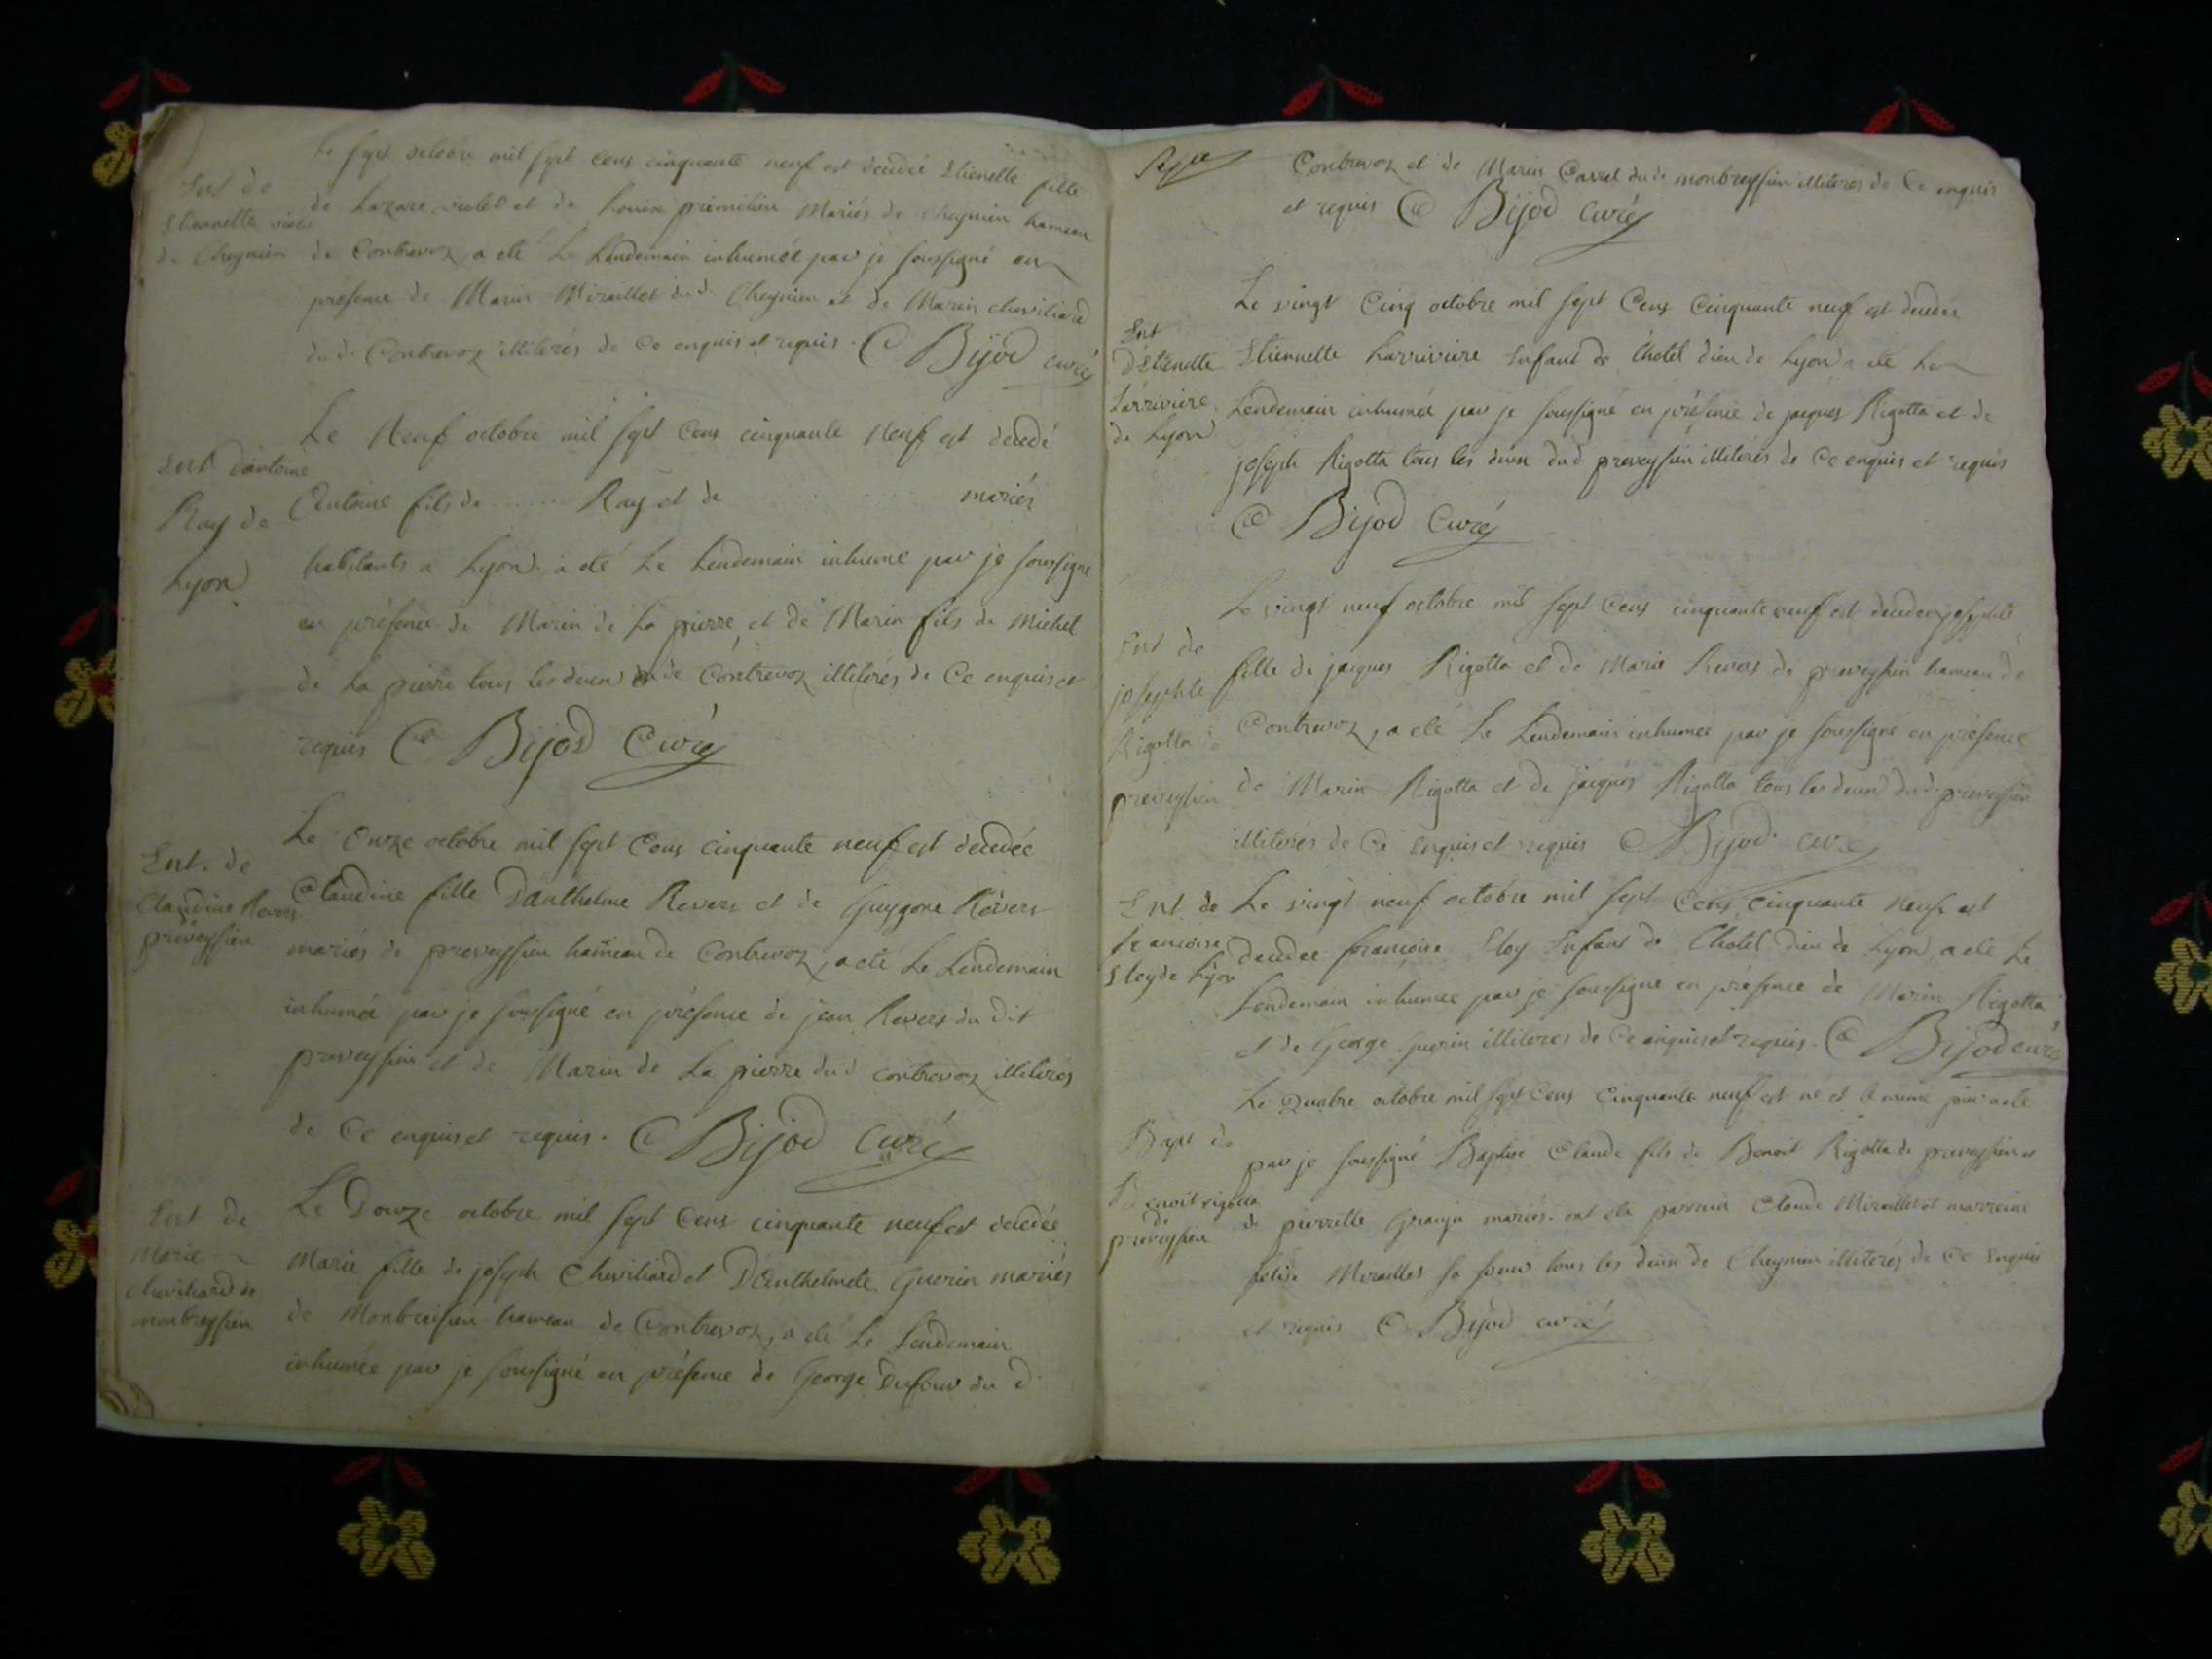 Le sept octobre mil sept cens cinquante neuf est decedée Etienette fille
Ent de
Etiennette violet
de Cheynieu
de Lazare violet et de Louise primilieu Mariés de cheynieu hameau
de Contrevoz, a eté le Landemain inhumée par je soussigné en
présence de Marin Miraillet dud. Cheynieu et de Marin cheviliard
dud. Contrevoz illiterés de Ce enquis et requis. C Bijod curé
Le Neuf octobre mil sept Cens cinquante Neuf est decedé
Ent d'antoine
Ray de
Lyon
Antoine fils de ........ Ray et de mariés
habitants a Lyon. a eté Le Lendemain inhumé par je soussigné
en présence de Marin de La pierre et de Marin fils de Michel
de La pierre tous les deux de Contrevoz illiterés de Ce enquis et
requis C Bijod Curé
Le Onze octobre mil sept Cens cinquante neuf est decedée
Ent. de
Claudine Revers
de
preveyssieu
Claudine fille D'anthelme Revers et de Guygone Revers
mariés de preveyssieu hameau de Contrevoz, a eté Le Lendemain
inhumée par je soussigné en présence de jean Revers du dit
preveyssieu et de Marin de La pierre dud contrevoz illiterés
de Ce enquis et requis. C Bijod Curé
Ent de
Marie
cheviliard de
monbreyssieu
Le Douze octobre mil sept Cens cinquante neuf est decedée
Marie fille de joseph Cheviliard et D'Anthelmete Guerin mariés
de Monbreissieu hameau de Contrevoz, a eté Le Lendemain
inhumée par je soussigné en présence de George Dufour du d
Contrevoz et de Marin Carrel dud. monbreyssieu illiterés de Ce enquis
et requis C Bijod Curé
Le vingt Cinq octobre mil sept Cens Cinquante neuf est decedée
Ent
d'Etienette
Larriviere
de Lyon
Etiennette Larriviere Enfant de L'hotel dieu de Lyon a eté Le
Lendemain inhumée par je soussigné en présence de jacques Rigotta et de
joseph Rigotta tous les deux dud. preveyssieu illiterés de Ce enquis et requis
C Bijod Curé
Le vingt neuf octobre mil sept Cens cinquante neuf est decedée josephte
Ent de
josephte
Rigotta de
preveyssieu
fille de jacques Rigotta et de Marie Revers de preveyssieu hameau de
Contrevoz, a eté Le Lendemain inhumée par je soussigné en présence
de Marin Rigotta et de jacques Rigotta tous les deux dud. preveyssieu
illiterés de Ce enquis et requis C Bijod curé
Ent de
francoise
Eloy de Lyon
Le vingt neuf octobre mil sept Cens cinquante Neuf est
decedee francoise Eloy Enfant de L'hotel dieu de Lyon, a eté Le
Lendemain inhumee par je soussigné en présence de Marin Rigotta
et de George guerin illiteres de Ce enquis et requis. C Bijod curé
Le Quatre octobre mil sept Cens Cinquante neuf est né et le meme jour a eté
Bapt de
Benoit rigotta
de
preveyssieu
par je soussigné Baptisé Claude fils de Benoit Rigotta de preveyssieu et
de pierrette Granju mariés. ont eté parrain Claude Miraillet et marreine
Miraillet sa soeur tous les deux de Cheynieu illiterés de Ce Enquis
et requis C Bijod curé